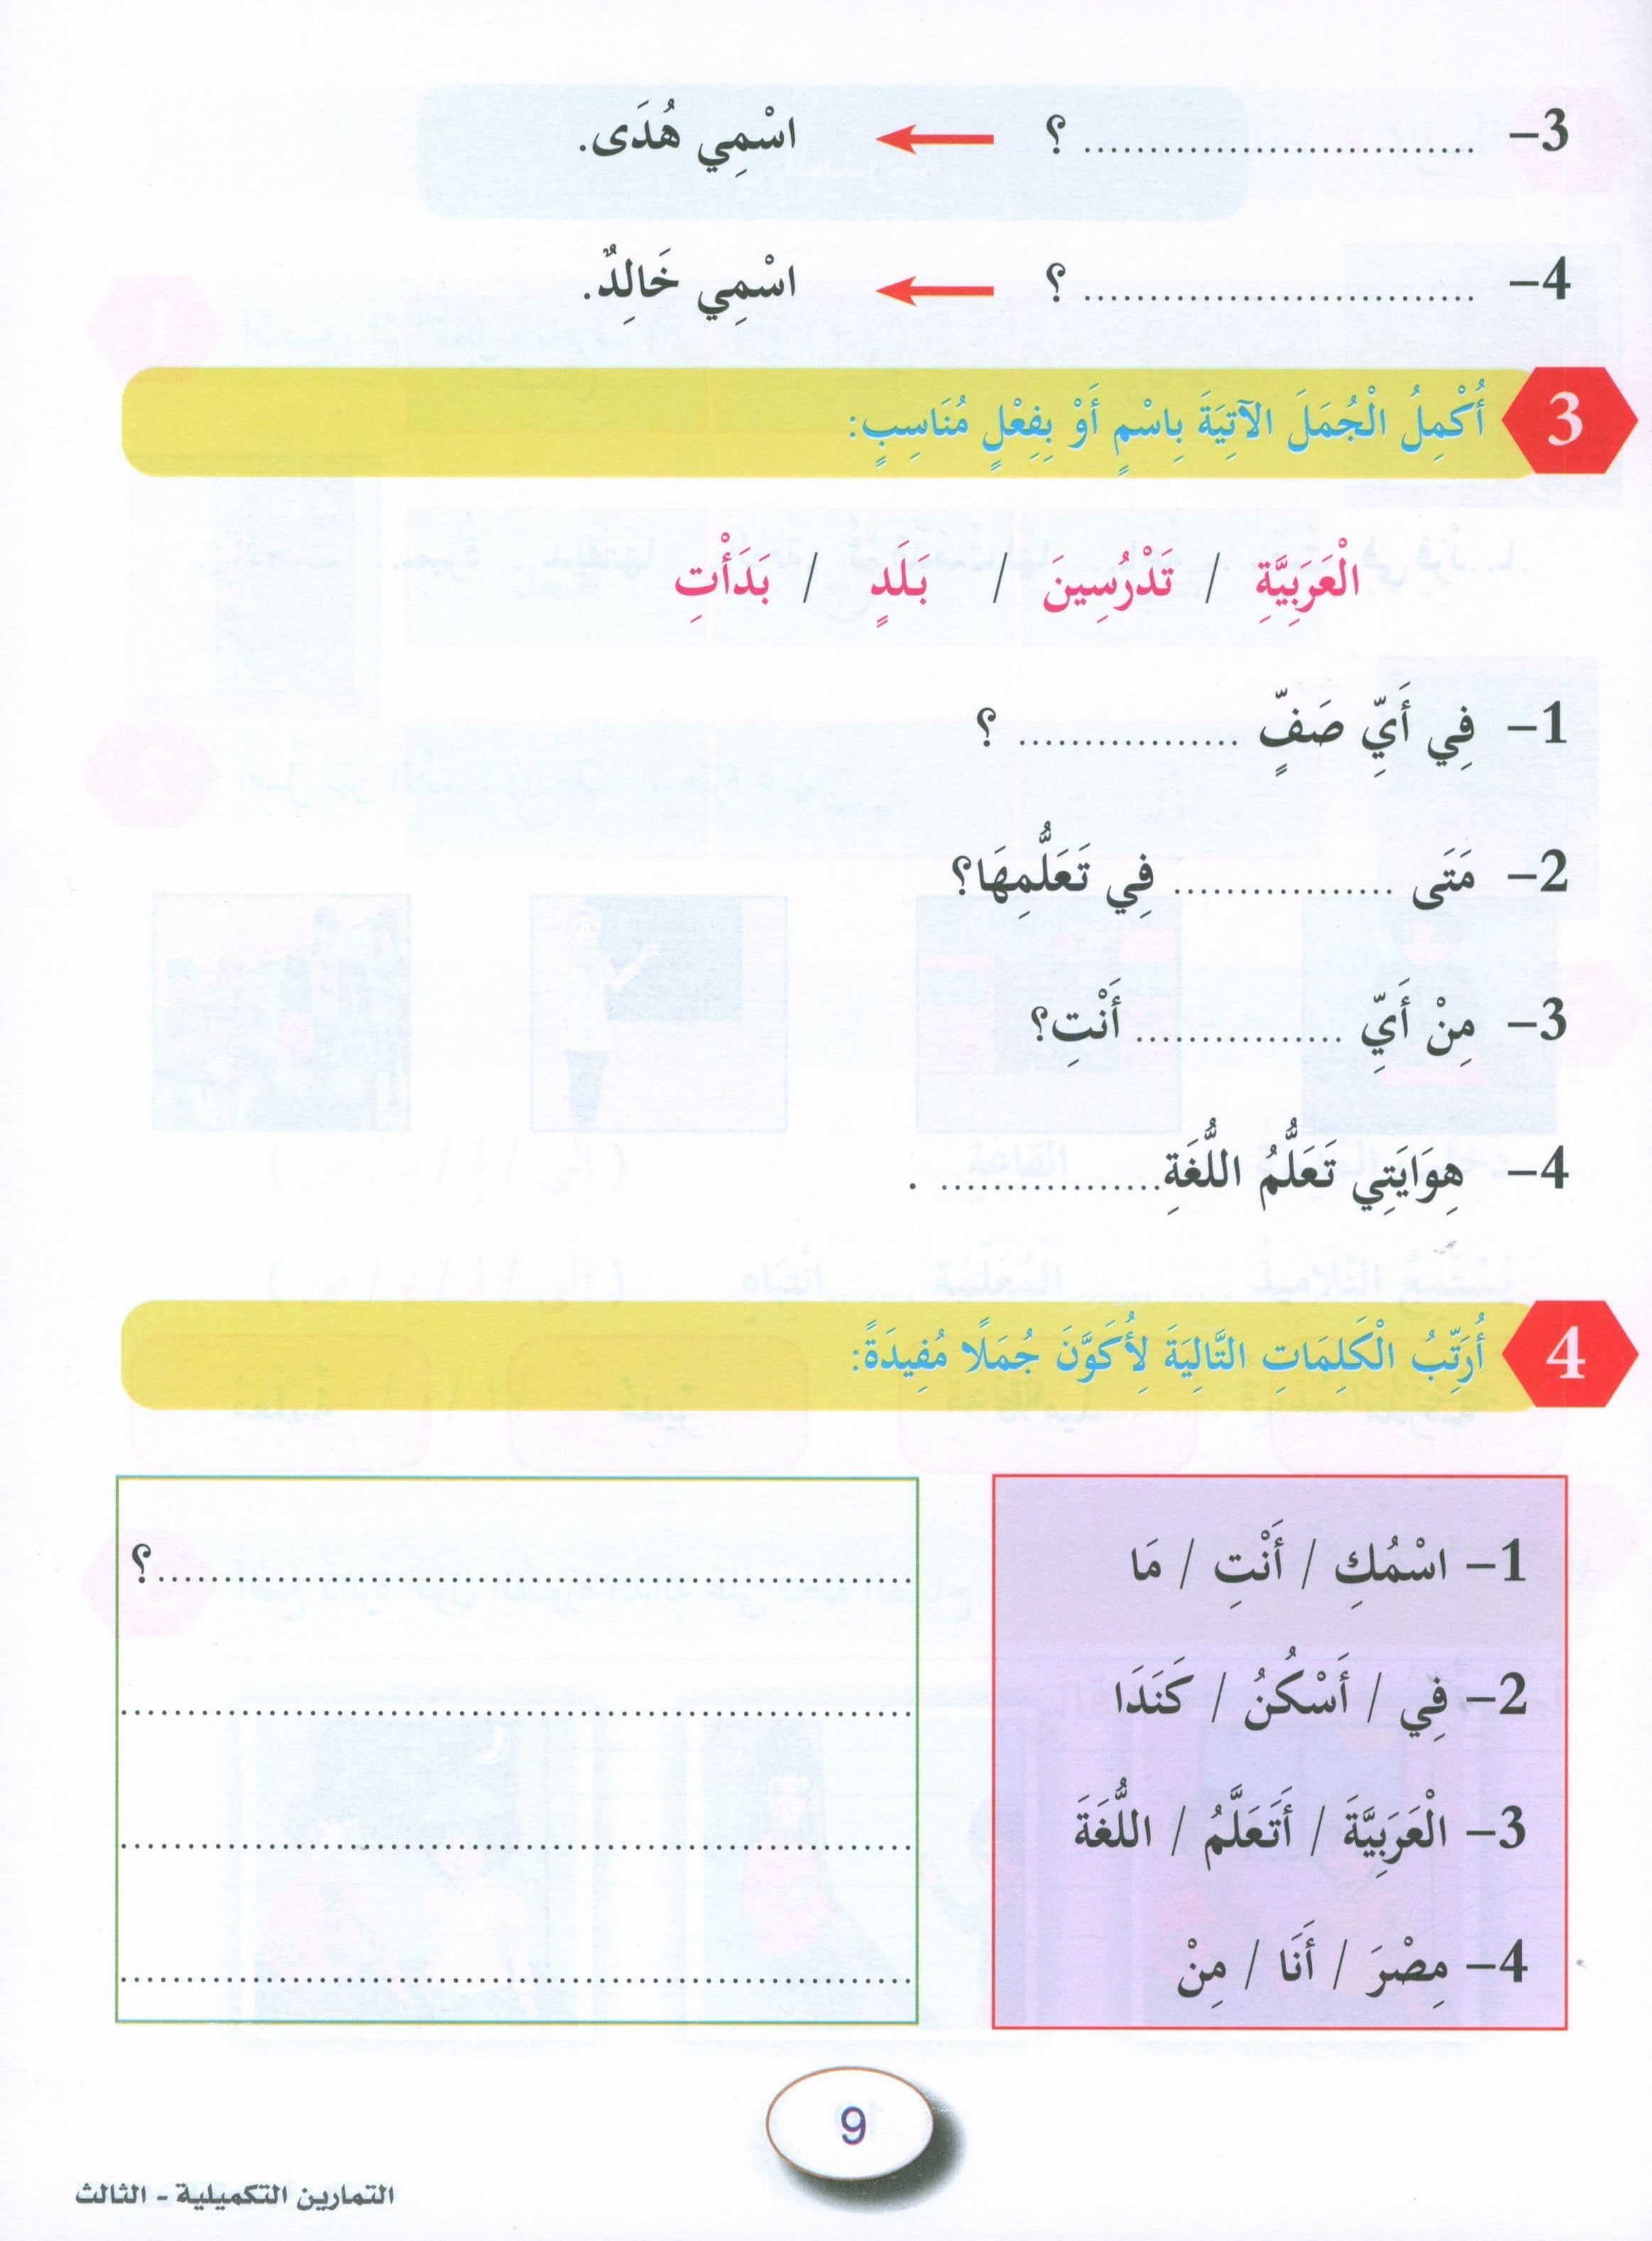 3- .............................. ؟ ← اسْمِي هُدَى.
4- .............................. ؟ ← اسْمِي خَالِدٌ.
3 أُكْمِلُ الْجُمَلَ الآتِيَةَ بِاسْمٍ أَوْ بِفِعْلٍ مُنَاسِبٍ:
الْعَرَبِيَّةِ / تَدْرُسِينَ / بَلَدٍ / بَدَأْتِ
1- فِي أَيِّ صَفٍّ ................. ؟
2- مَتَى ................. فِي تَعَلُّمِهَا؟
3- مِنْ أَيِّ ................ أَنْتِ؟
4- هِوَايَتِي تَعَلُّمُ اللُّغَةِ................. .
4 أُرَتِّبُ الْكَلِمَاتِ التَّالِيَةَ لِأُكَوَّنَ جُمَلًا مُفِيدَةً:
1- اسْمُكِ / أَنْتِ / مَا ..........................................................؟
2- فِي / أَسْكُنُ / كَنَدَا ............................................................
3- الْعَرَبِيَّةَ / أَتَعَلَّمُ / اللُّغَةَ ............................................................
4- مِصْرَ / أَنَا / مِنْ ............................................................
9
التمارين التكميلية - الثالث